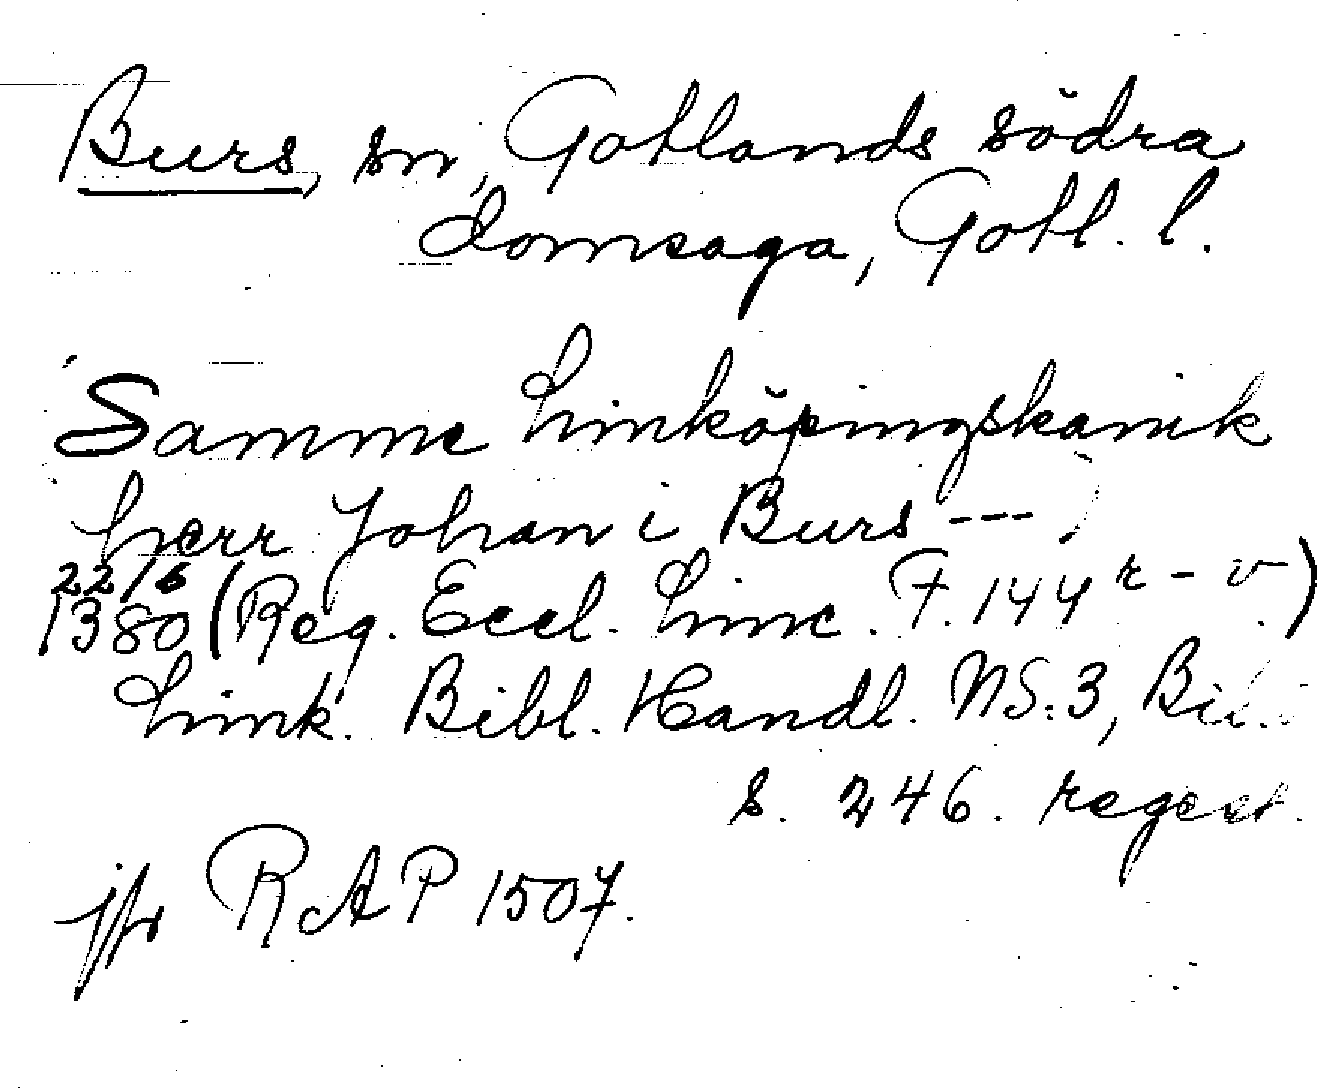 Burs, sn, Gotlands södra
domsaga, Gotl. l.
Samme Linköpingskanik
herr Johan i Burs ---
22/6
1380 (Reg. Eccl. Linc. F. 144 r - v.)
Link. Bibl. Handl. NS. 3,
s. 246. regest.
jfr RAP 1507.